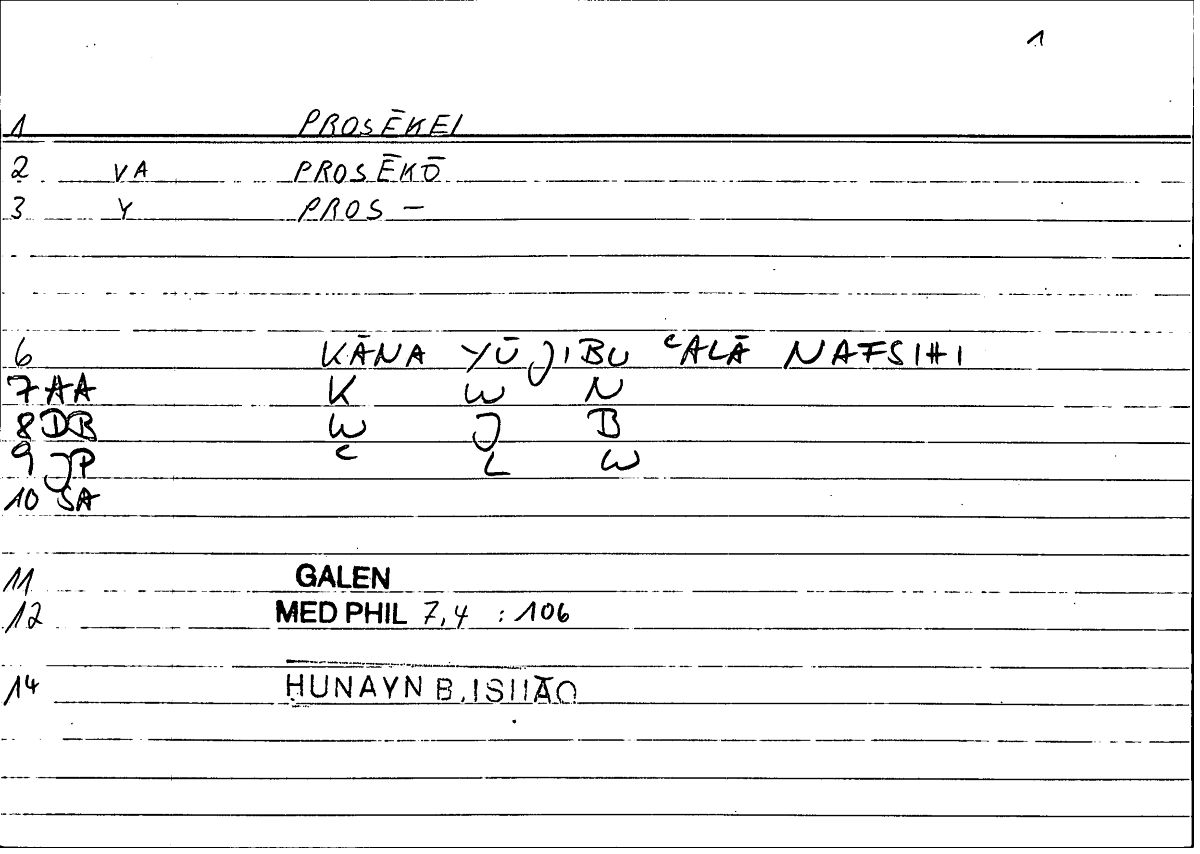 1
1 PROSĒKEI
2 VA PROSĒKŌ
3 Y PROS –
6 KĀNA YŪJIBU ʿALĀ NAFSIHI
7 AA K W N
8 DB W J B
9 JP ʿ L W
10 SA
11 GALEN
12 MED PHIL 7,4 : 106
14 ḤUNAYN B. ISḤĀQ